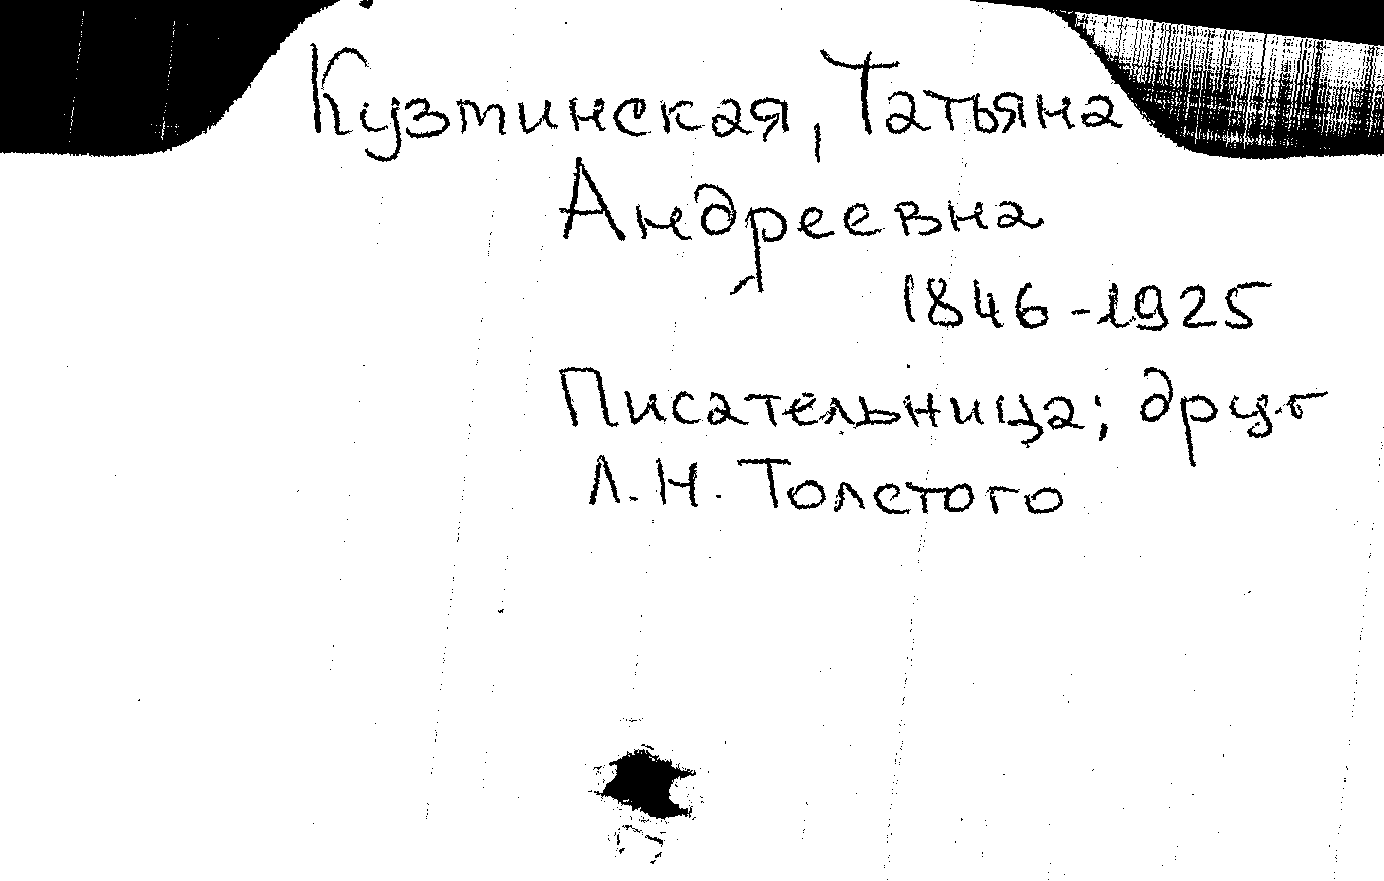 Кузминская, Татьяна
Андреевна
1846-1925
Писательница; друг
Л.Н. Толстого